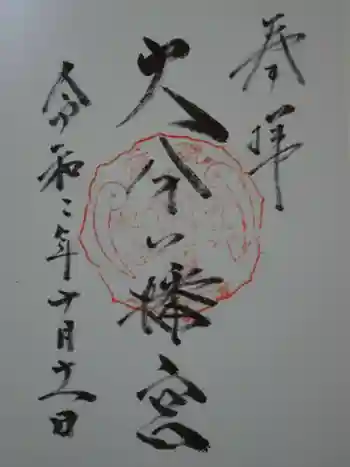 奉拝
大分八幡宮
令和二年十月十八日